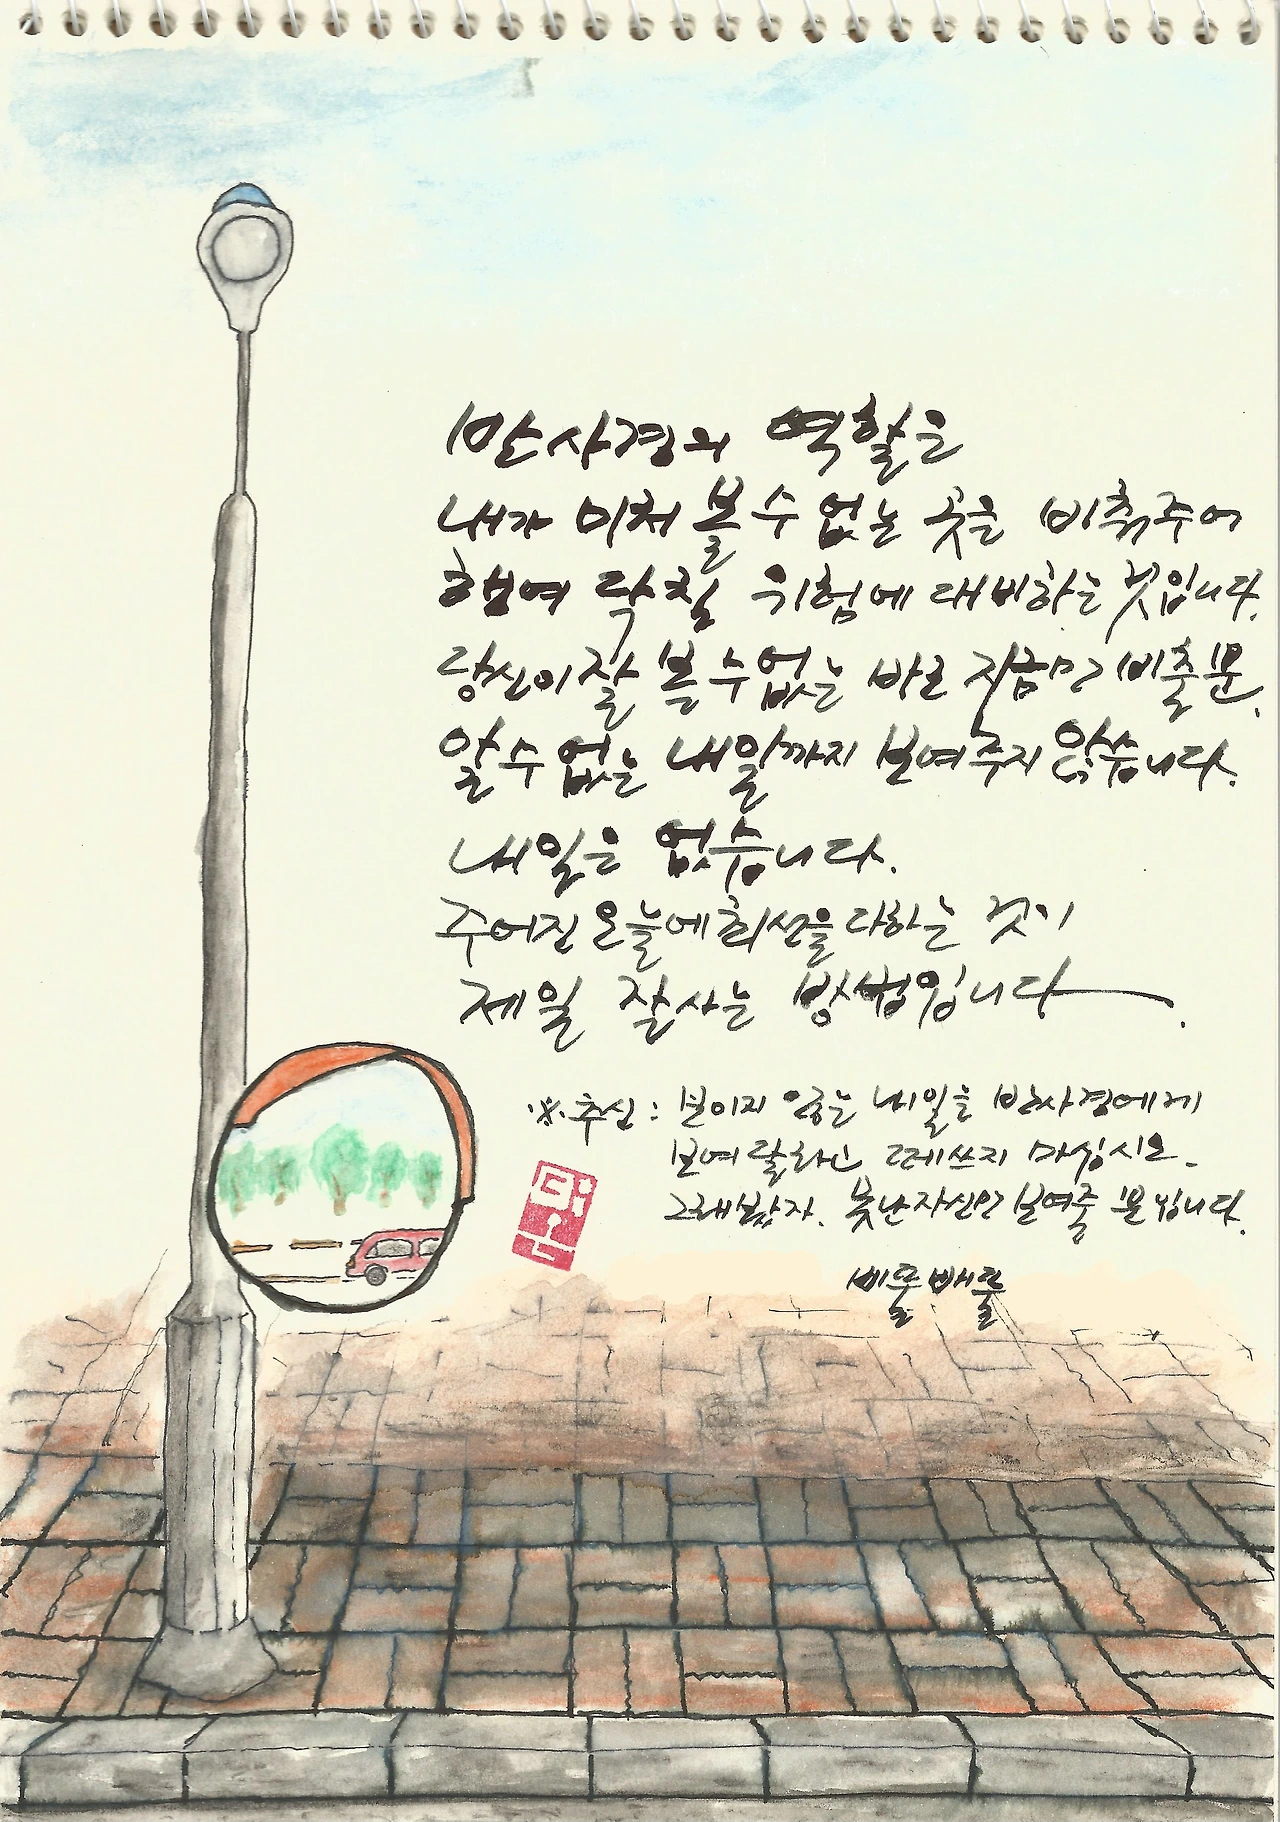 반사경의 역할은
내가 미처 볼 수 없는 곳을 비춰주어
행여 닥칠 위험에 대비하는 것입니다.
당신이 잘 볼 수 없는 바로 지금만 비출 뿐,
알 수 없는 내일까지 보여주지 않습니다.
내일은 없습니다.
주어진 오늘에 최선을 다하는 것이
제일 잘 사는 방법입니다.
※ 추신 : 보이지 않는 내일을 반사경에게
보여 달라고 떼쓰지 마십시오.
그래봤자, 못난 자신만 보여줄 뿐입니다.
삐뚤빼뚤